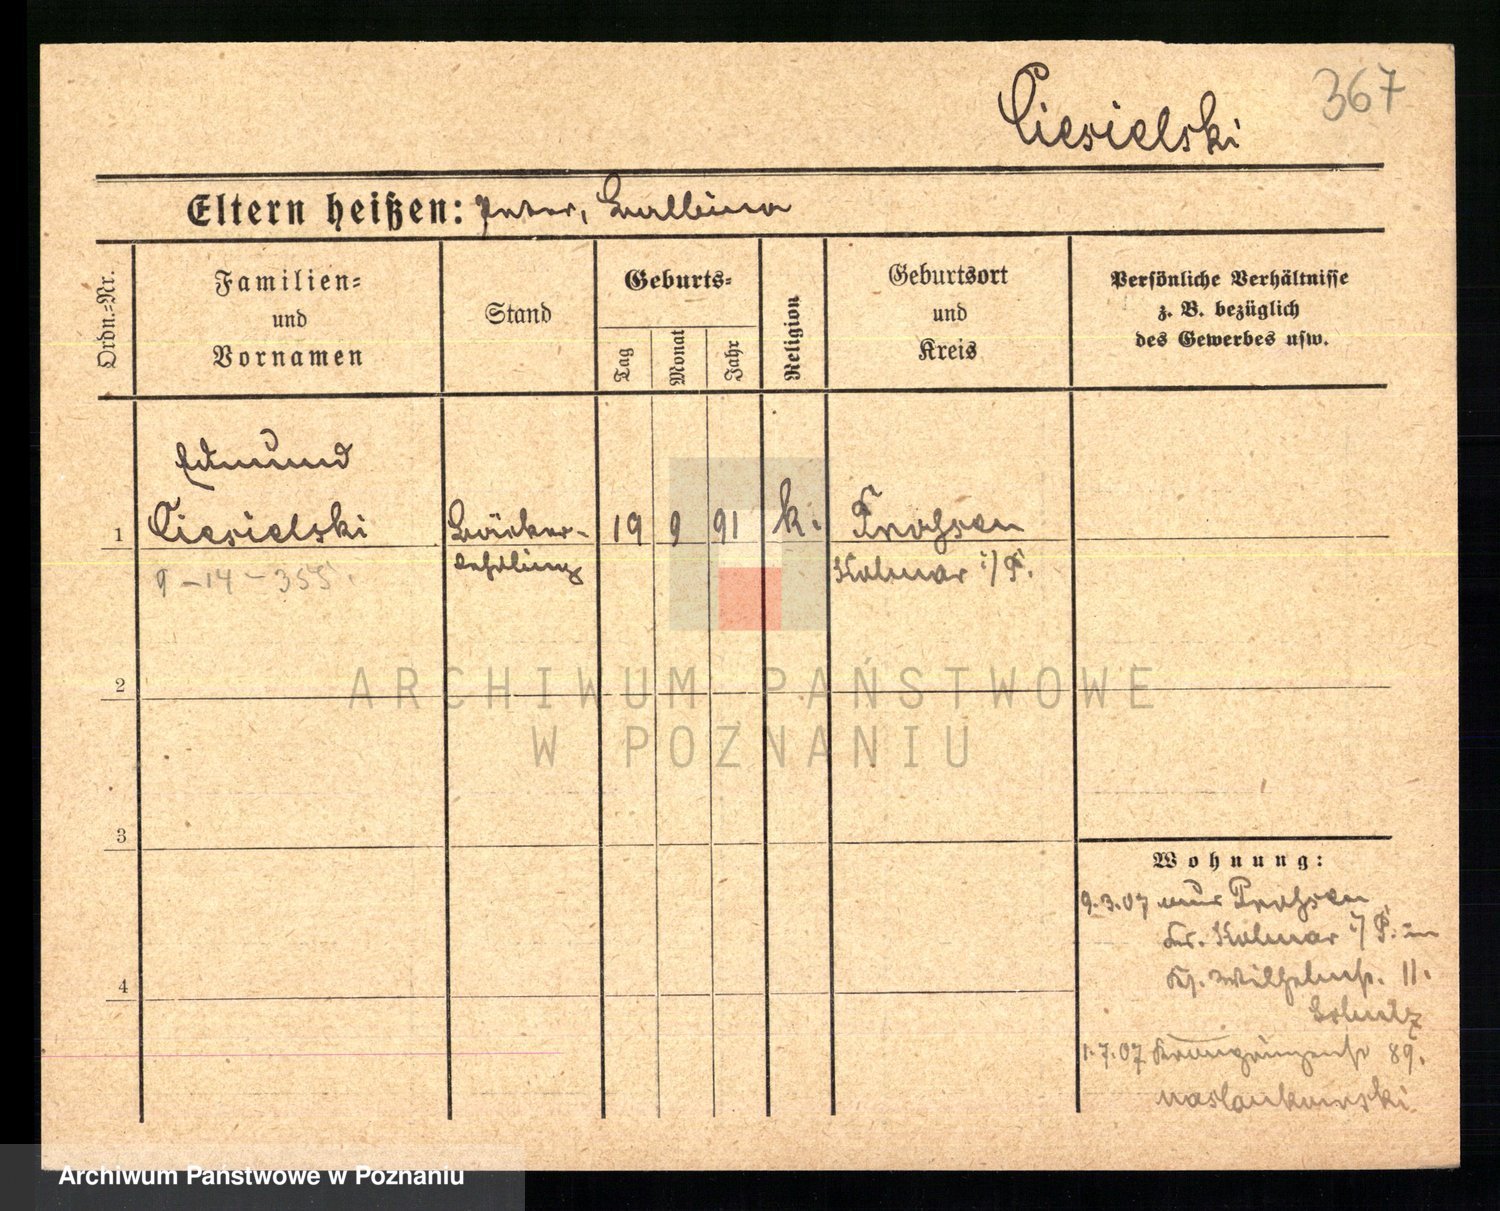 367
Ciesielski
Eltern heißen: Peter, Balbina
Ordn.-Nr.
Familien-
und
Vornamen
Stand
Geburts-
Tag
Monat
Jahr
Religion
Geburtsort
und
Kreis
Persönliche Verhältnisse
z. B. bezüglich
des Gewerbes usw.
Edmund
1 Ciesielski Bäcker- 19 9 91 k. Prossen
9-14-355. lehrling Kolmar i/P.
2
ARCHIWUM PAŃSTWOWE
W POZNANIU
3
Wohnung:
9.3.07 aus Prossen
Kr. Kolmar i/P. in
Wilhelmstr. 11.
4
1.7.07 Kronprinzenstr 89.
Maslankowski
Archiwum Państwowe w Poznaniu